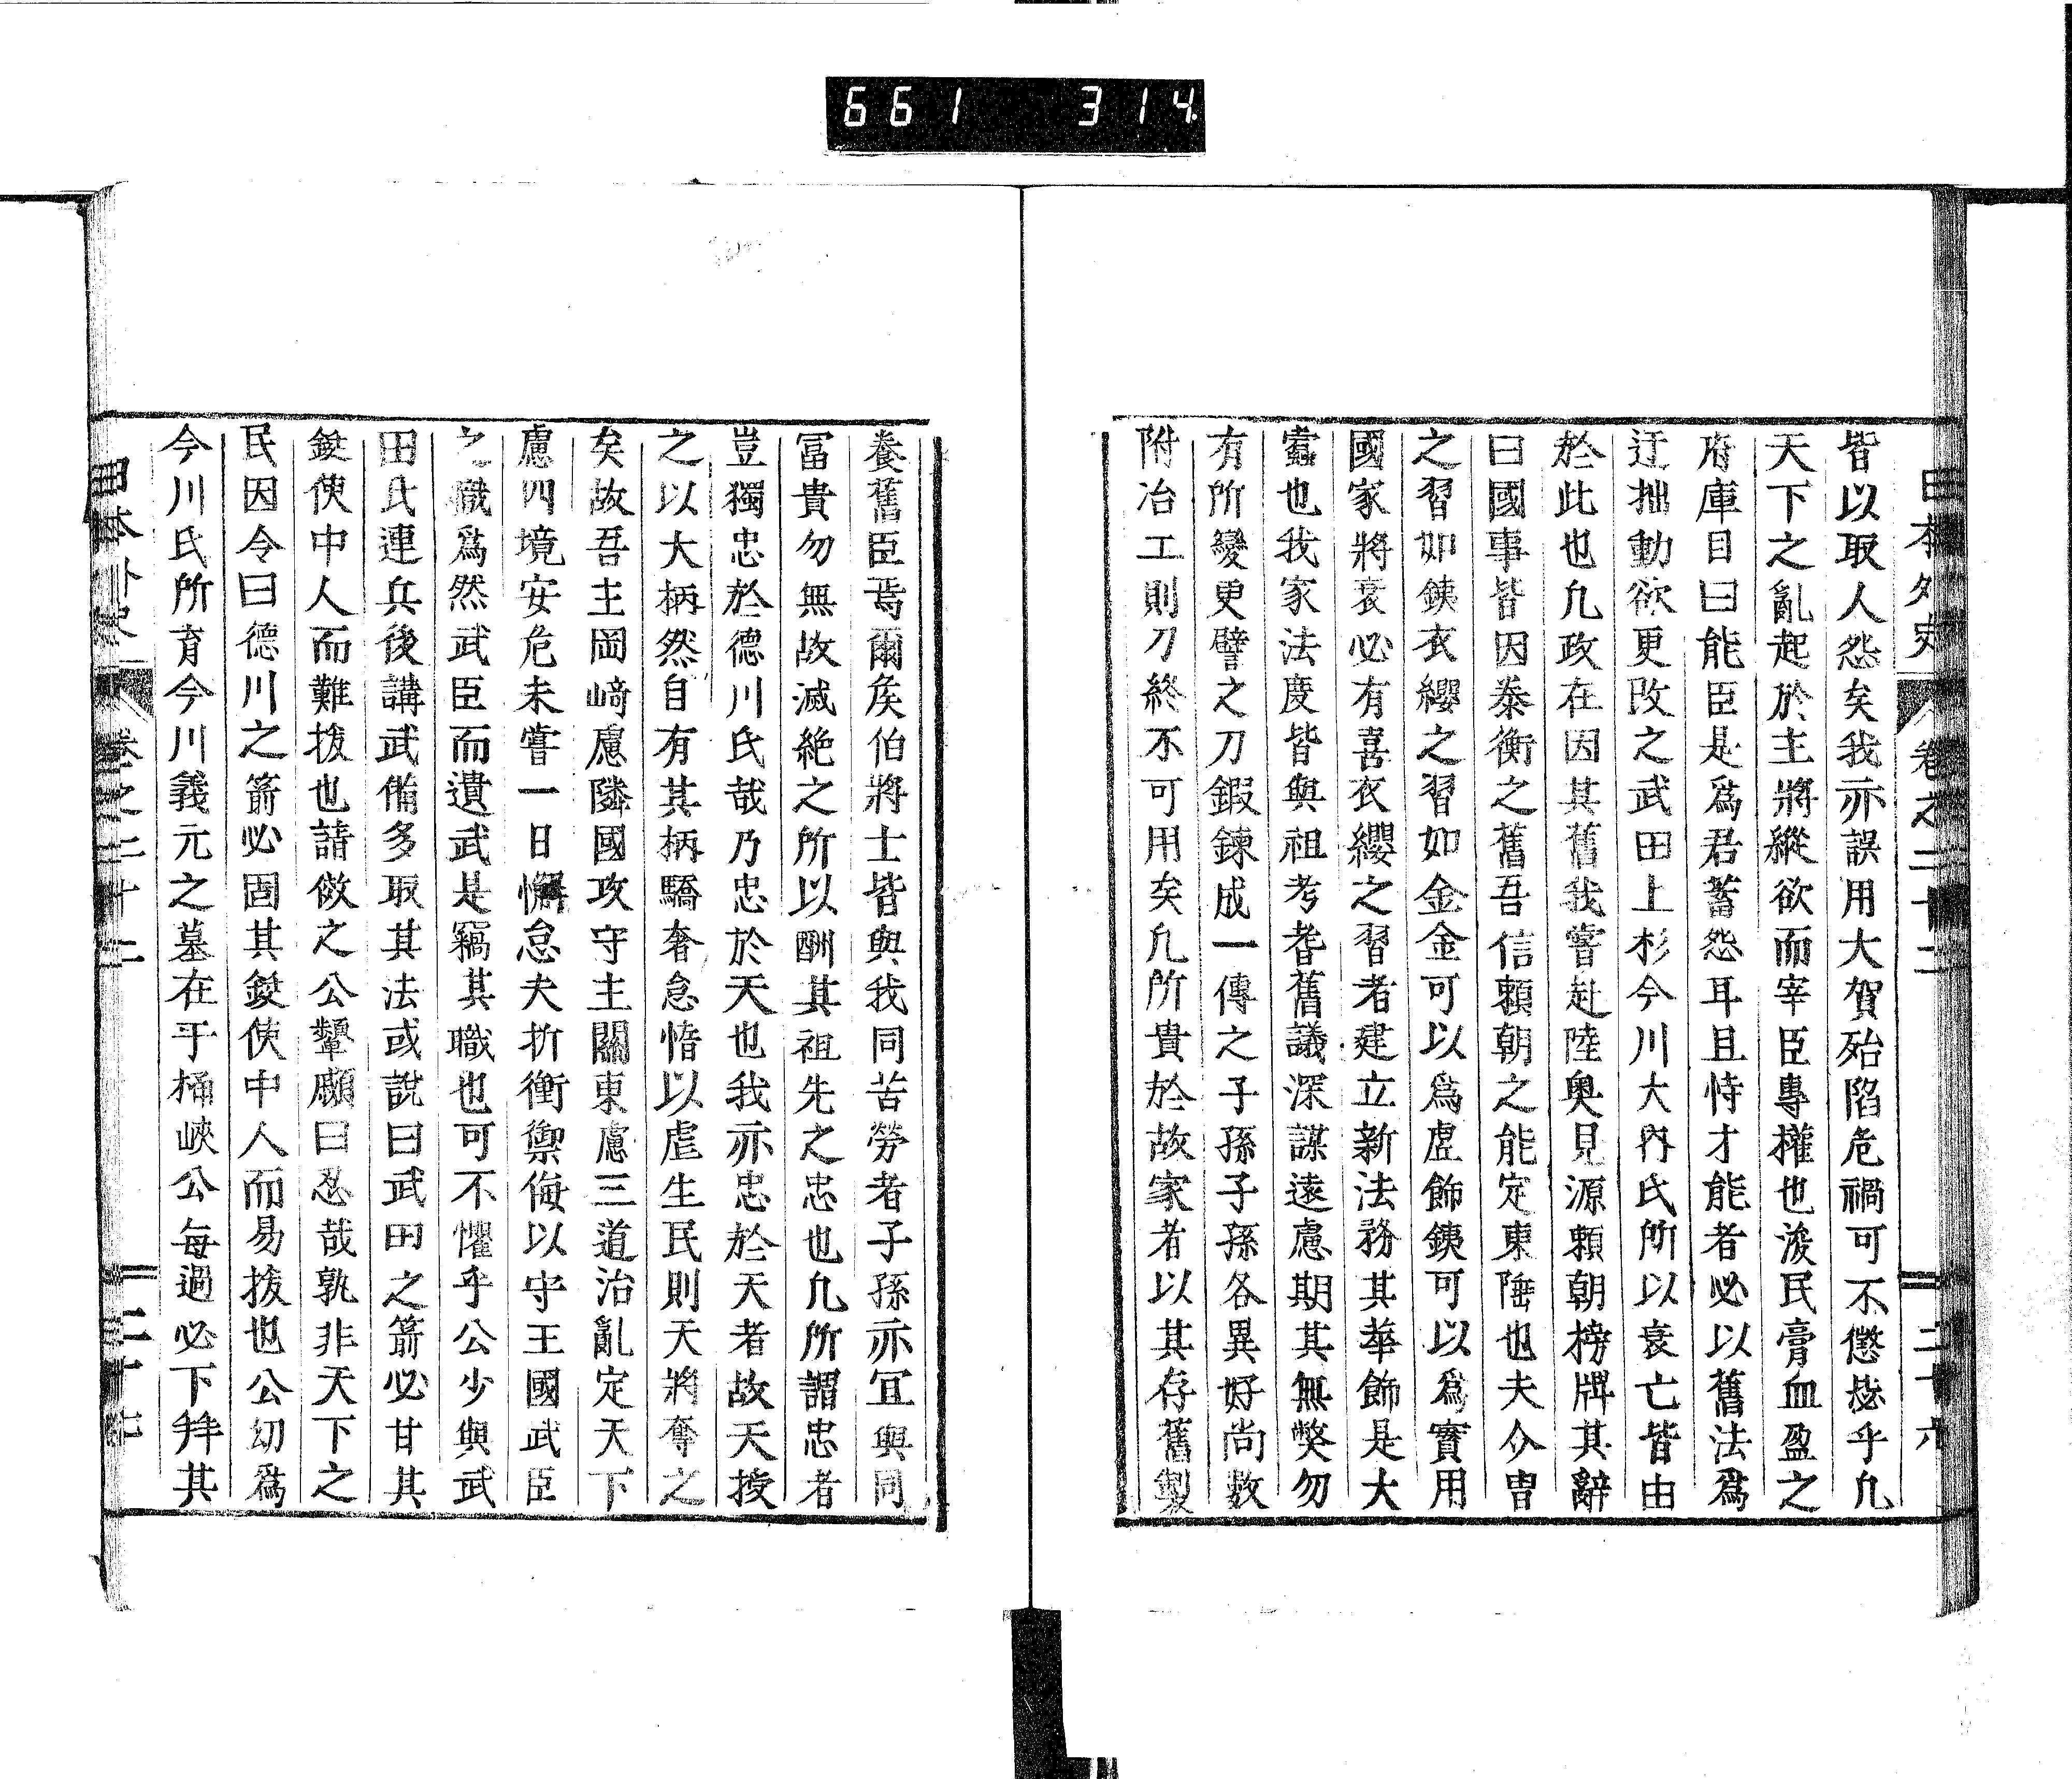 661 314
日本外史 卷之二十二 二十六
皆以取人怨矣我亦誤用大賀殆陷危禍可不懲毖乎凡
天下之亂起於主將縱欲而宰臣專權也浚民膏血盈之
府庫目曰能臣是爲君蓄怨耳且恃才能者必以舊法爲
迂拙動欲更改之武田上杉今川大內氏所以衰亡皆由
於此也凡政在因其舊我嘗赴陸奧見源賴朝榜牌其辭
曰國事皆因泰衡之舊吾信賴朝之能定東陲也夫介冑
之習如鐵衣纓之習如金金可以爲虛飾鐵可以爲實用
國家將衰必有喜衣纓之習者建立新法務其華飾是大
蠹也我家法度皆與祖考耆舊議深謀遠慮期其無弊勿
有所變更譬之刀鍜鍊成一傳之子孫子孫各異好尚數
附冶工則刀終不可用矣凡所貴於故家者以其存舊製
養舊臣焉爾矦伯將士皆與我同苦勞者子孫亦宜與同
富貴勿無故滅絕之所以酬其祖先之忠也凡所謂忠者
豈獨忠於德川氏哉乃忠於天也我亦忠於天者故天授
之以大柄然自有其柄驕奢怠惰以虐生民則天將奪之
矣故吾主岡﨑慮隣國攻守主關東慮三道治亂定天下
慮四境安危未嘗一日懈怠夫折衝禦侮以守王國武臣
之職爲然武臣而遺武是竊其職也可不懼乎公少與武
田氏連兵後講武備多取其法或說曰武田之箭必甘其
鏃使中人而難拔也請傚之公顰顣曰忍哉孰非天下之
民因令曰德川之箭必固其鏃使中人而易拔也公幼爲
今川氏所育今川義元之墓在乎桶峽公每過必下拜其
日本外史 卷之二十二 二十七